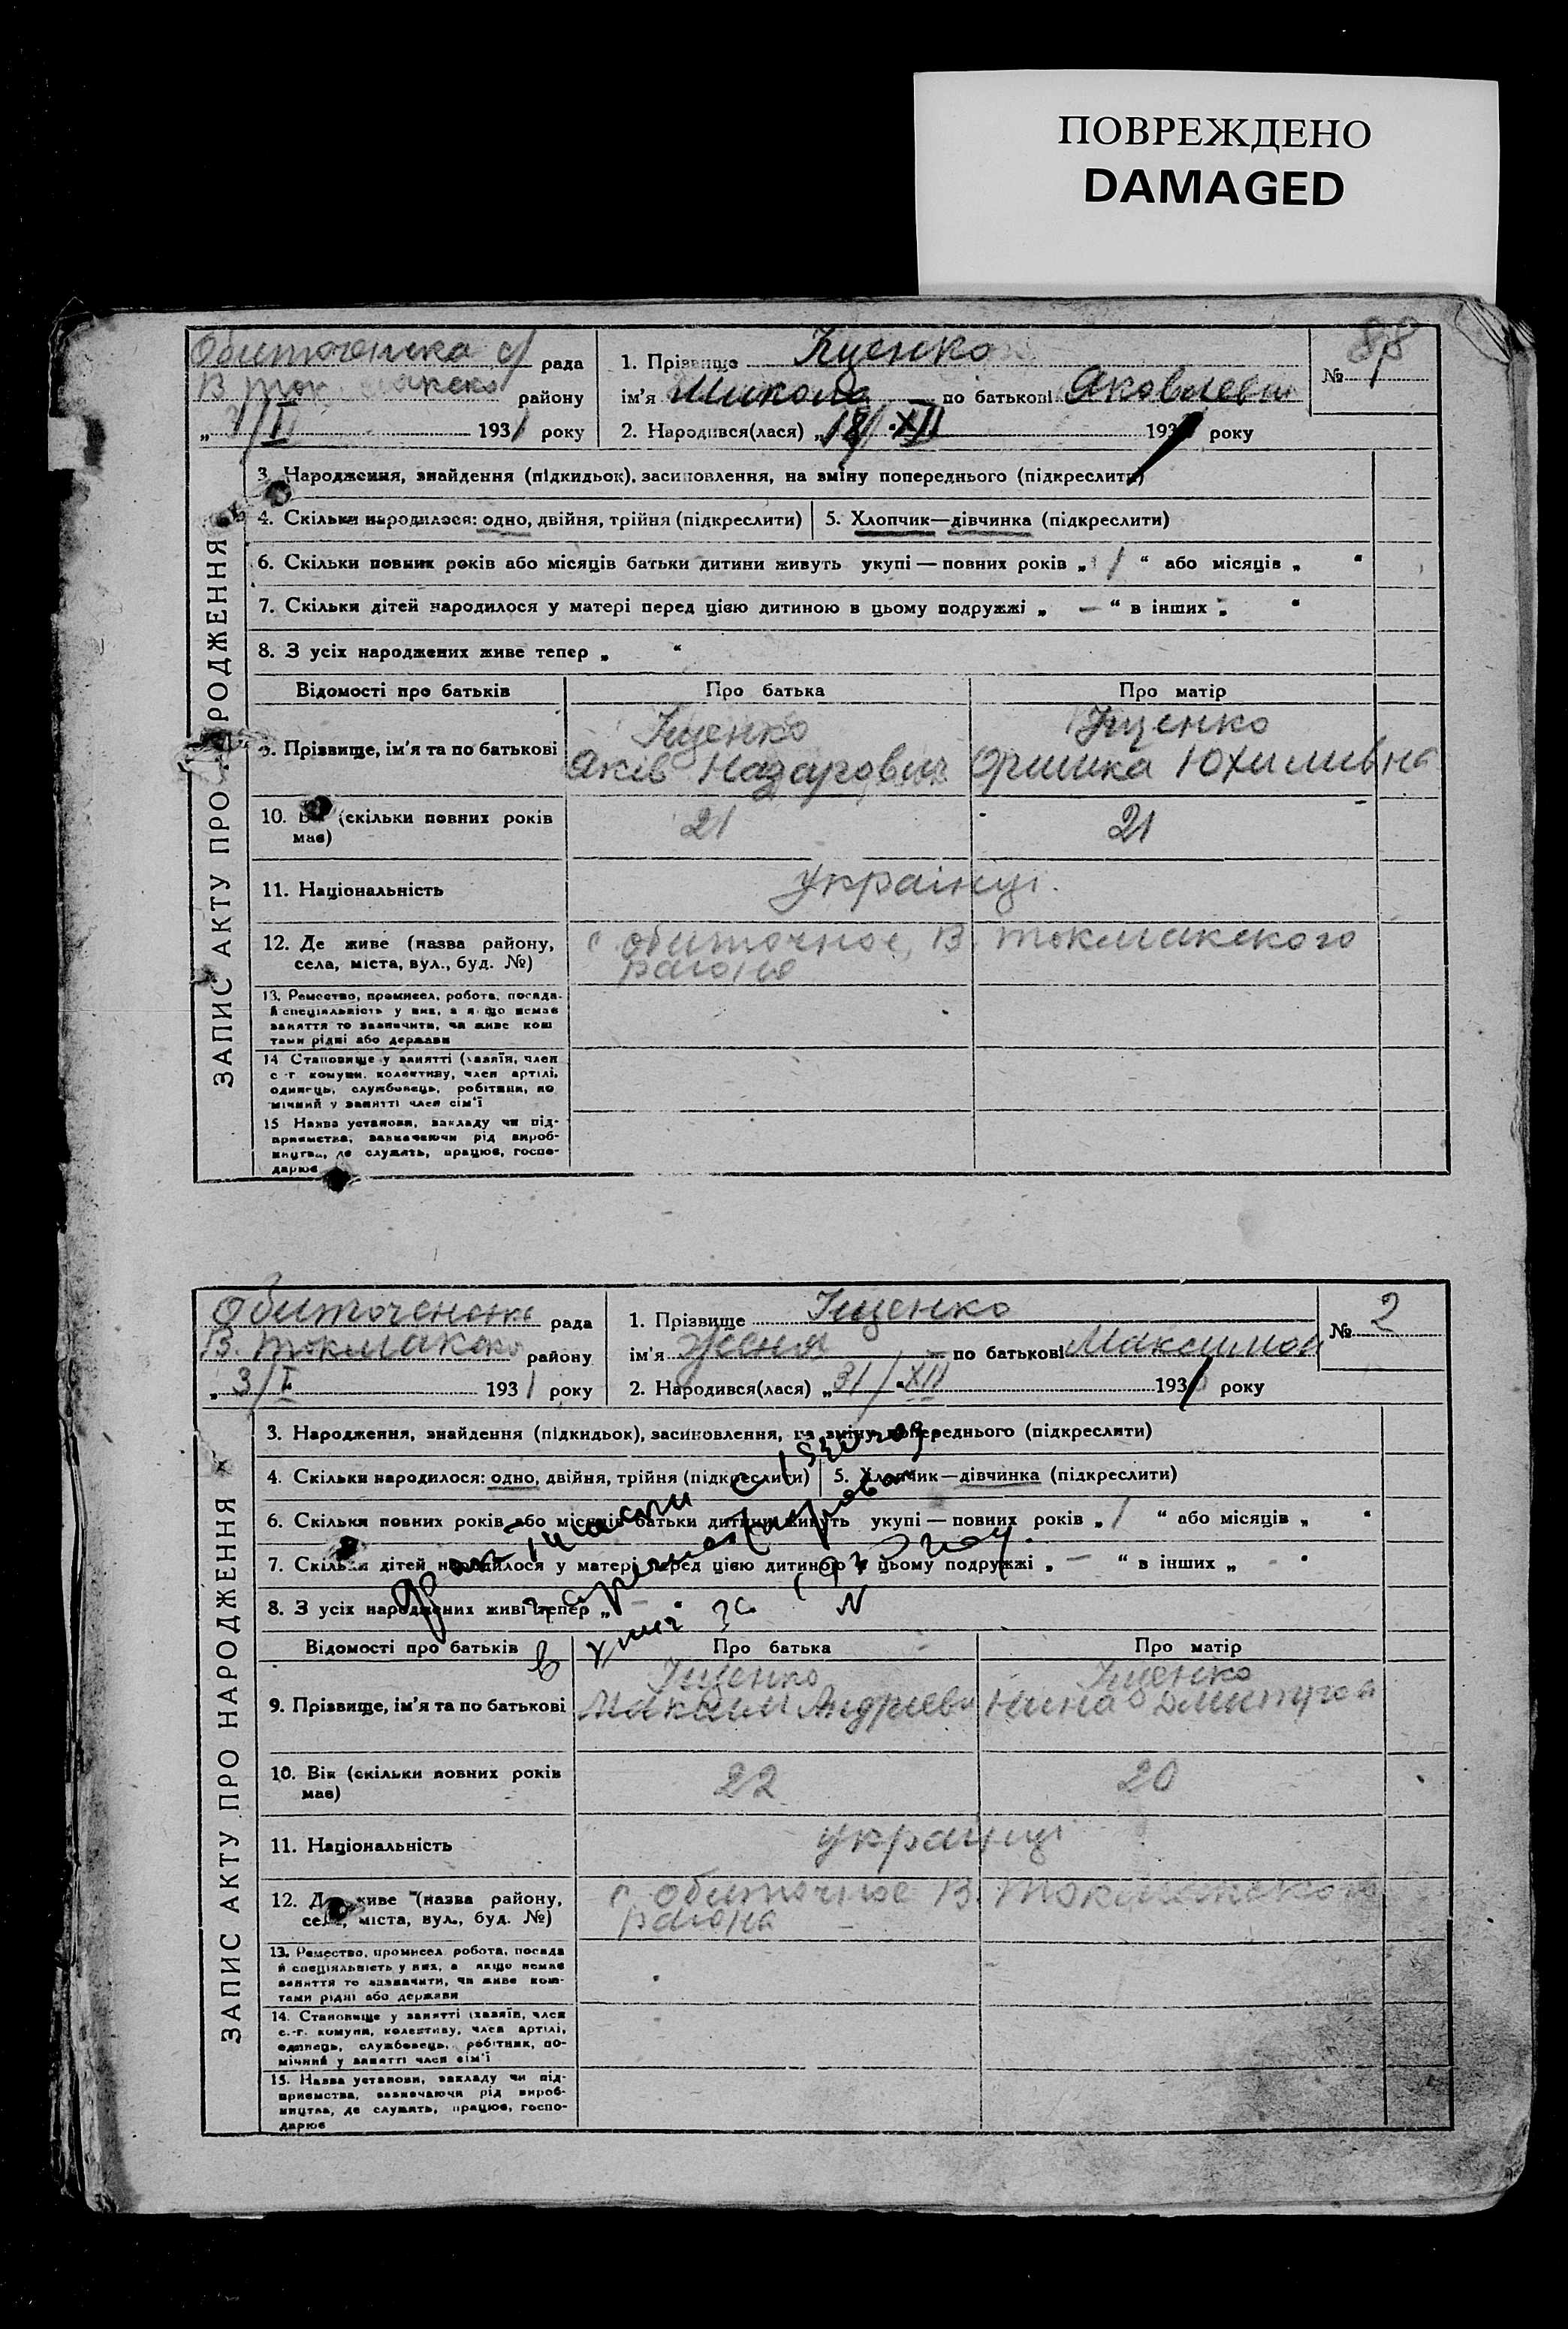 ПОВРЕЖДЕНО
DAMAGED
88
рада
району
„ 3/I 1931 року
1. Прізвище Іщенко
ім'я Микола по батькові Яковлевич
2. Народився(лася) „18/XII 193 року
№ 1
ЗАПИС АКТУ ПРО НАРОДЖЕННЯ
3. Народження, знайдення (підкидьок), засиновлення, на зміну попереднього (підкреслити)
4. Скільки народилося: одно, двійня, трійня (підкреслити) 5. Хлопчик—дівчинка (підкреслити)
6. Скільки повних років або місяців батьки дитини живуть укупі — повних років „ 1 “ або місяців „ “
7. Скільки дітей народилося у матері перед цією дитиною в цьому подружжі „ — “ в інших „ “
8. З усіх народжених живе тепер „ “
Відомості про батьків Про батька Про матір
9. Прізвище, ім'я та по батькові
Іщенко
Яків Назарович
Іщенко
Оришка Юхимивна
10. Вік (скільки повних років має) 21 21
11. Національність українці.
12. Де живе (назва району, села, міста, вул., буд. №)
с обиточное, В. токмакского
района
13. Ремество, промисел, робота, посада
й спеціяльність у них, а якщо немає
заняття то зазначити, чи живе кош
тами рідні або держави
14 Становище у занятті (хазяїн, член
с -г комуни, колективу, член артілі,
одинець, службовець, робітник, по
мічний у занятті член сім'ї
15 Назва установи, закладу чи під-
приємства, зазначаючи рід вироб-
ництва, де служить, працює, госпо-
дарює
рада
В. району
„ 3/I 1931 року
1. Прізвище Іщенко
ім'я Женя по батькові
2. Народився(лася) „31/XII 193 року
№ 2
ЗАПИС АКТУ ПРО НАРОДЖЕННЯ
3. Народження, знайдення (підкидьок), засиновлення, на зміну попереднього (підкреслити)
4. Скільки народилося: одно, двійня, трійня (підкреслити) 5. Хлопчик—дівчинка (підкреслити)
6. Скільки повних років або місяців батьки дитини живуть укупі — повних років „ 1 “ або місяців „ “
7. Скільки дітей народилося у матері перед цією дитиною в цьому подружжі „ — “ в інших „ - “
8. З усіх народжених живі тепер „
Відомості про батьків Про батька Про матір
9. Прізвище, ім'я та по батькові
Іщенко
Максим Андриеви
Іщенко
Нина
10. Вік (скільки повних років має) 22 20
11. Національність українці
12. Де живе (назва району, села, міста, вул., буд. №)
с обиточное В. токмакского
района
13. Ремество, промисел робота, посада
й спеціяльність у них, а якщо немає
заняття то зазначити, чи живе кош-
тами рідні або держави
14. Становище у занятті (хазяїн, член
с.-г. комуни, колективу, член артілі,
одинець, службовець, робітник, по-
мічний у занятті член сім'ї
15. Назва установи, закладу чи під-
приємства, зазначаючи рід вироб-
ництва, де служить, працює, госпо-
дарює